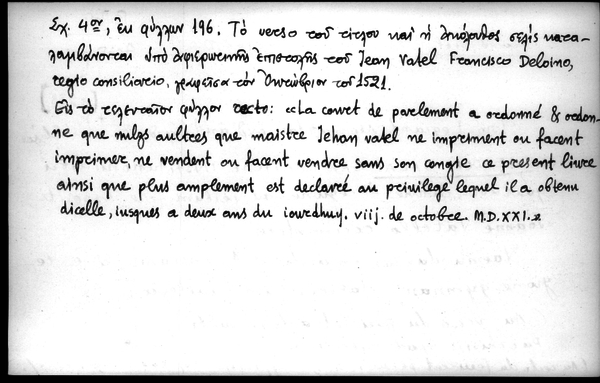 Σχ. 4ον, ἐκ φύλλων 196. Τὸ verso τοῦ τίτλου καὶ ἡ ἀκόλουθος σελὶς κατα-
λαμβάνονται ὑπὸ ἀφιερωτικῆς ἐπιστολῆς τοῦ Jean Vatel Francisco Deloino,
regio consiliario, γραφεῖσα τὸν Ὀκτώβριον τοῦ 1521.
Εἰς τὸ τελευταῖον φύλλον recto: «La court de parlement a ordonné & ordon-
ne que nulz aultres que maistre Jehan vatel ne impriment ou facent
imprimer, ne vendent ou facent vendre sans son congie ce present livre
ainsi que plus amplement est declaré au privilege lequel il a obtenu
dicelle, iusques a deux ans du iourdhuy. viij. de octobre. M.D.XXI.»